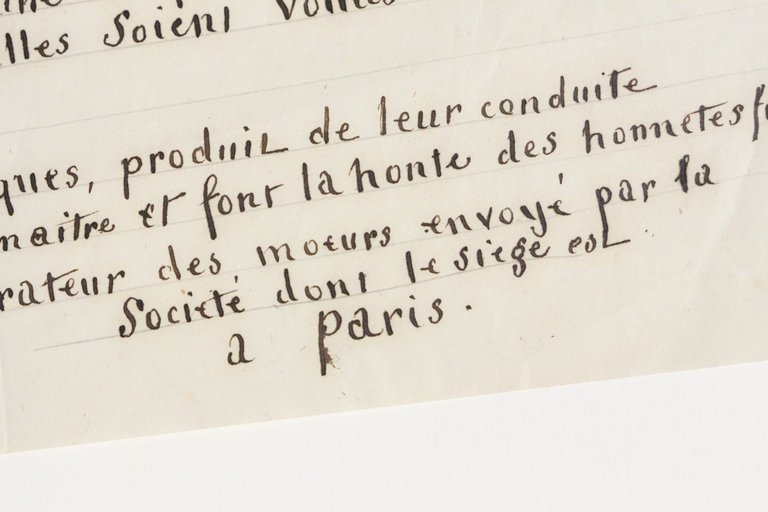 lles soient
ques, produit de leur conduite
naitre et font la honte des honnetes
rateur des mœurs envoyé par la
Societé dont le siege est
a Paris.